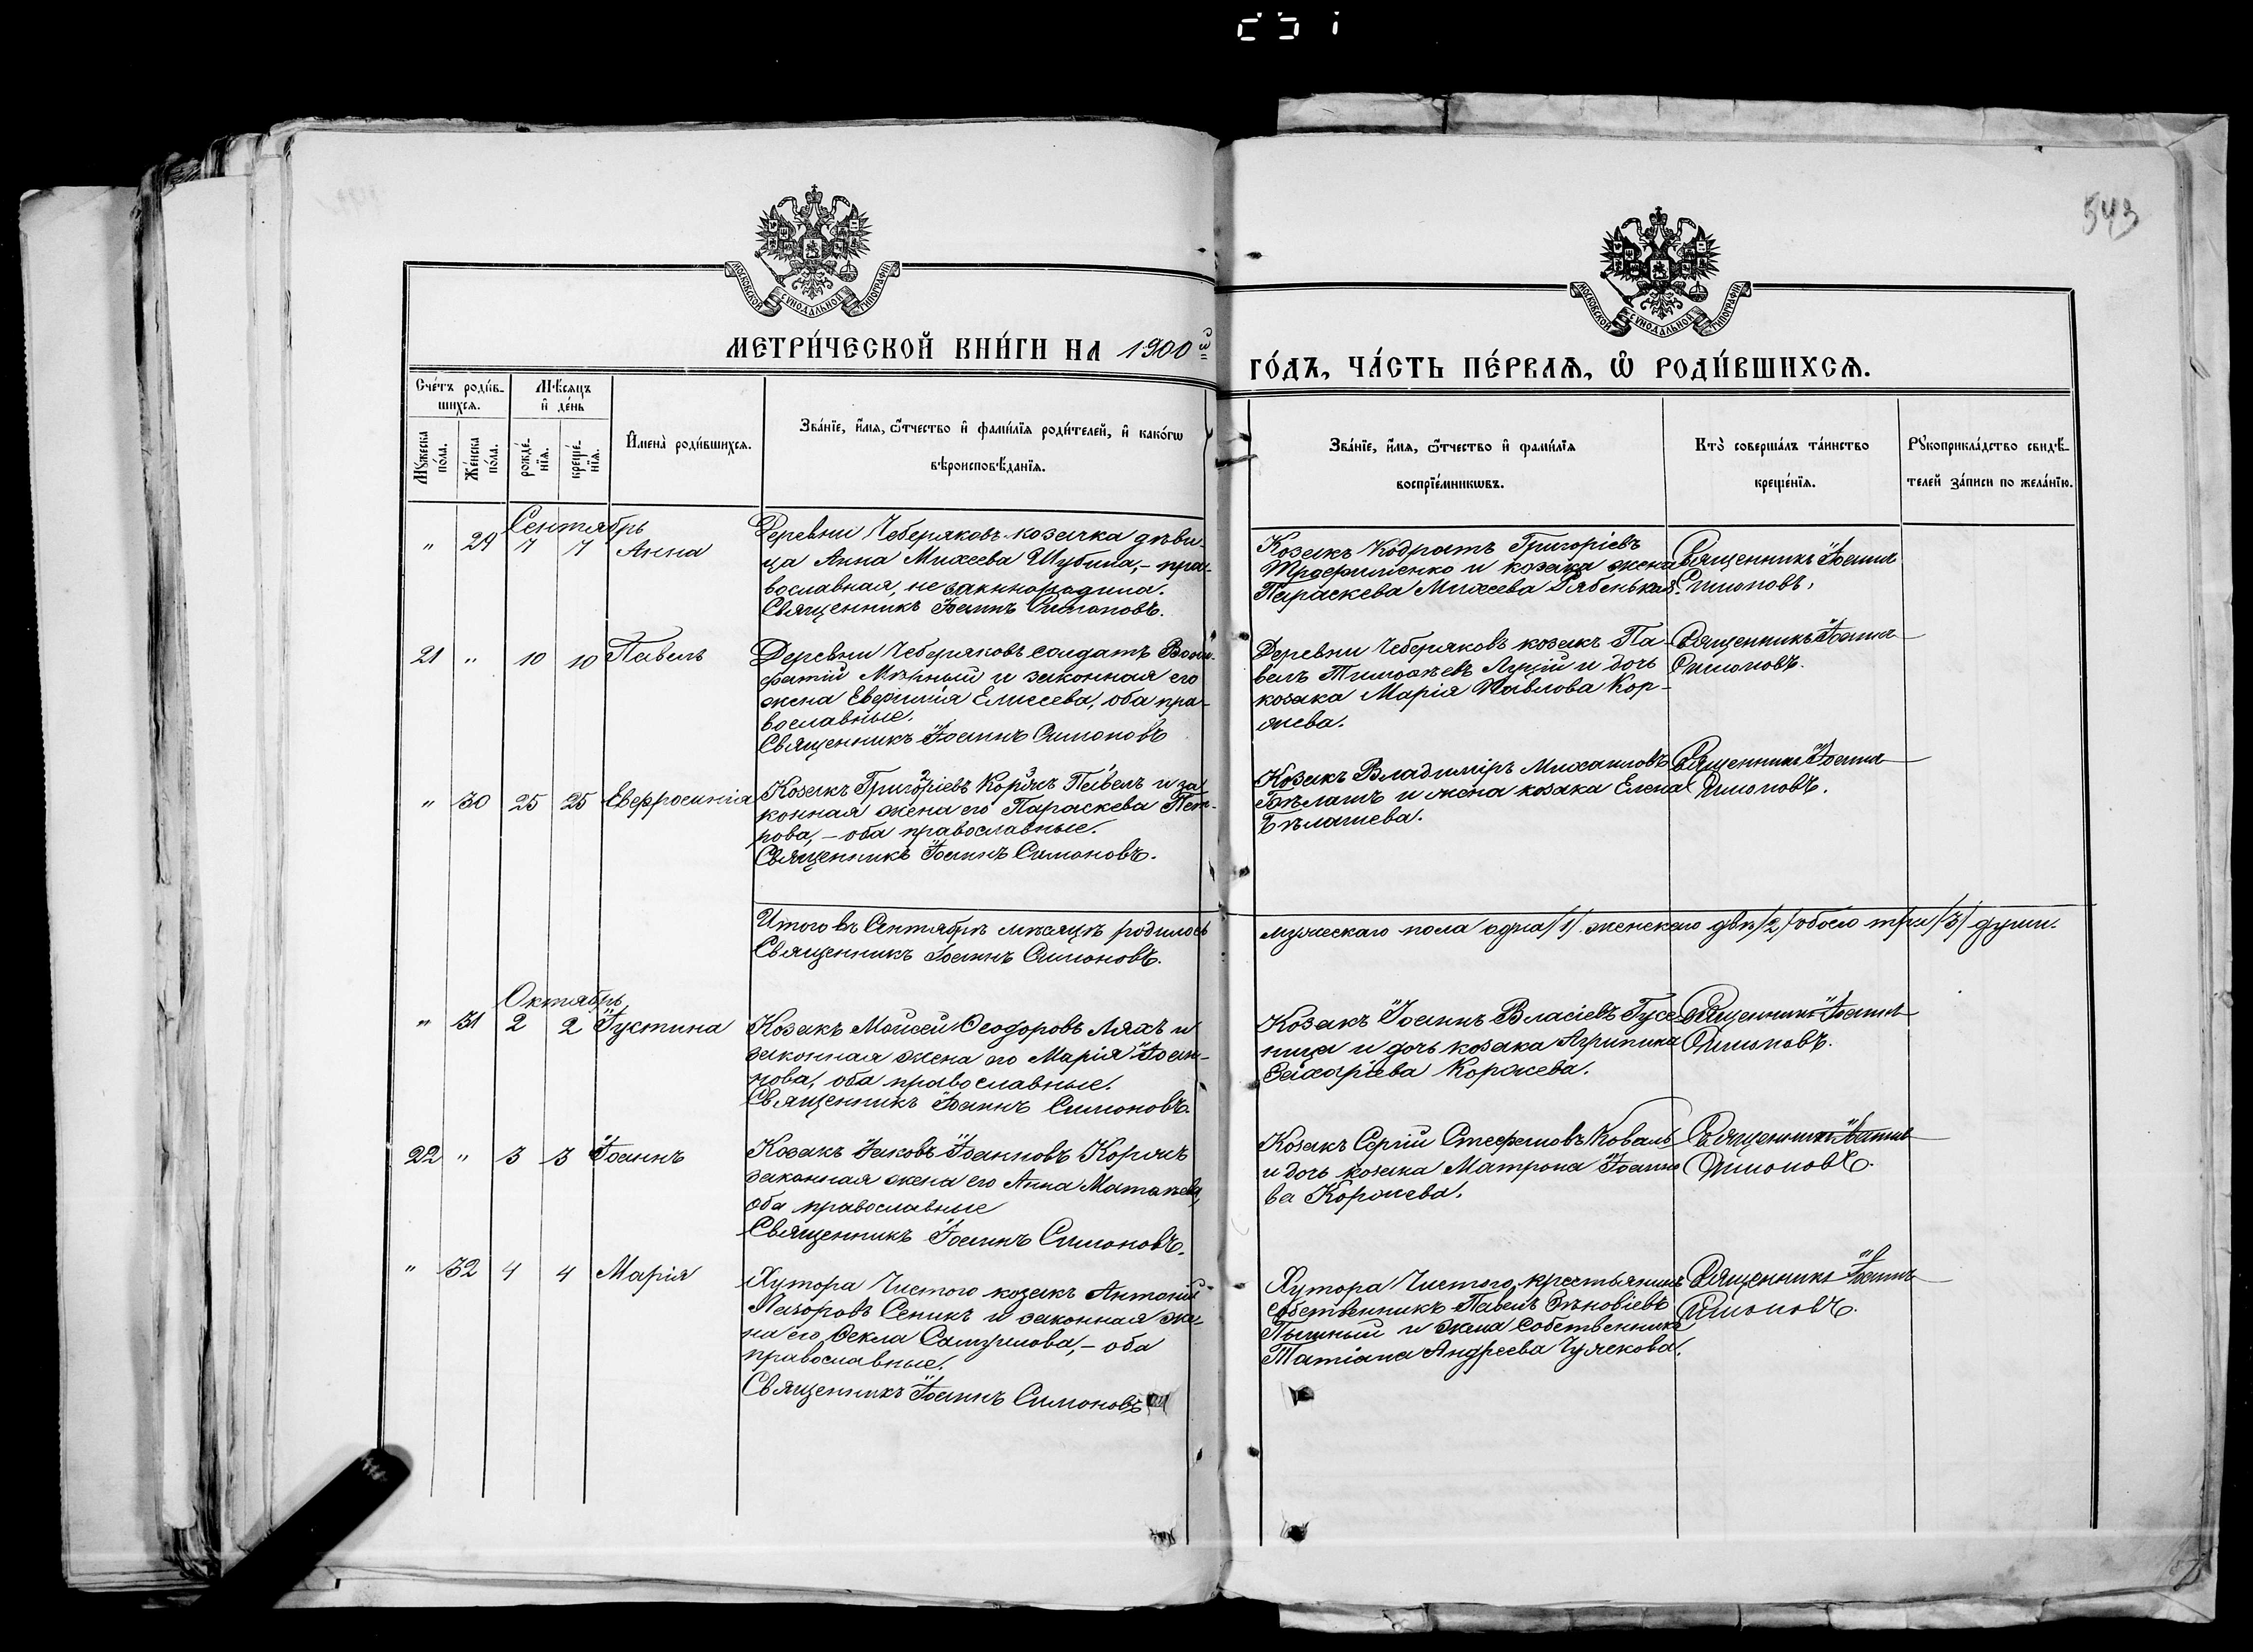 543
МОСКОВСКОЙ СѴНОДАЛЬНОЙ ТИПОГРАФІИ
МОСКОВСКОЙ СѴНОДАЛЬНОЙ ТИПОГРАФІИ
МЕТРИ́ЧЕСКОЙ КНИ́ГИ НА 1900й
ГО́ДЪ, ЧА́СТЬ ПЕ́РВАѦ, Ѽ РОДИ́ВШИХСѦ.
Сче́тъ роди́в-
шихсѧ.
Мѣсяцъ
и҆ де́нь
Мꙋжеска по́ла.
Же́нска по́ла.
рожде́нїѧ.
креще́нїѧ.
И҆мена̀ роди́вшихсѧ.
Зва́нїе, и҆́мѧ, ѻ҆́тчество и҆ фами́лїѧ роди́телей, и҆ како́гѡ
вѣроисповѣ́данїѧ.
Зва́нїе, и҆́мѧ, ѻ҆́тчество и҆ фами́лїѧ
воспрїе́мникѡвъ.
Кто̀ соверша́лъ та́инство
креще́нїѧ.
Рꙋкоприкла́дство свидѣ́-
телей за́писи по жела́нїю.
Сентябрь
" 29 7 7 Анна
Деревни Чеберяковъ козачка дѣви-
ца Анна Михеева Шубина, - пра-
вославная, незаконнорадила.
Священникъ Іоаннъ Симоновъ.
Козакъ Кодратъ Григоріевъ
Трофименко и козака жена
Параскева Михеева Рябенькая.
Священникъ Іоаннъ
Симоновъ.
21 " 10 10 Павелъ
Деревни Чеберяковъ солдатъ Вони-
фатій Мѣнный и законная его
жена Евфимія Елисеева, оба пра-
вославные.
Священникъ Іоаннъ Симоновъ
Деревни Чеберяковъ козакъ Па-
велъ Тимофѣевъ Луцій и дочь
козака Марія Павлова Кор-
жева.
Священникъ Іоаннъ
Симоновъ.
" 30 25 25 Евфросинія
Козакъ Григоріевъ Коржъ Павелъ и за-
конная жена его Параскева Пет-
рова, - оба православные.
Священникъ Іоаннъ Симоновъ.
Козакъ Владиміръ Михаиловъ
Бѣлашъ и жена козака Елена
Бѣлашева.
Священникъ Іоаннъ
Симоновъ.
Итого въ Сентябрѣ мѣсяцѣ родилось
мужескаго пола одна /1/ женскаго двѣ /2/ обоего три /3/ души.
Священникъ Іоаннъ Симоновъ.
Октябрь
" 31 2 2 Іустина
Козакъ Моисей Ѳеодоровъ Ляхъ и
законная жена его Марія Іоан-
нова, оба православные.
Священникъ Іоаннъ Симоновъ
Козакъ Іоаннъ Власіевъ Гусе-
ница и дочь козака Агрипина
Захаріева Коржева.
Священникъ Іоаннъ
Симоновъ.
22 " 3 3 Іоаннъ
Козакъ Іаковъ Іоанновъ Коржъ
законная жена его Анна Матвѣева,
оба православные
Священникъ Іоаннъ Симоновъ.
Козакъ Сергій Стефановъ Коваль
и дочь козака Матрона Іоанно
ва Коржева.
Священникъ Іоаннъ
Симоновъ.
" 32 4 4 Марія
Хутора Чистого козакъ Антоній
Лазоровъ Сеникъ и законная же-
на его Ѳекла Самуилова, - оба
православные.
Священникъ Іоаннъ Симоновъ
Хутора Чистого, крестьянинъ
собственникъ Павелъ Зѣновіевъ
Пышный и жена собственника
Татіана Андреева Чумакова.
Священникъ Іоаннъ
Симоновъ.